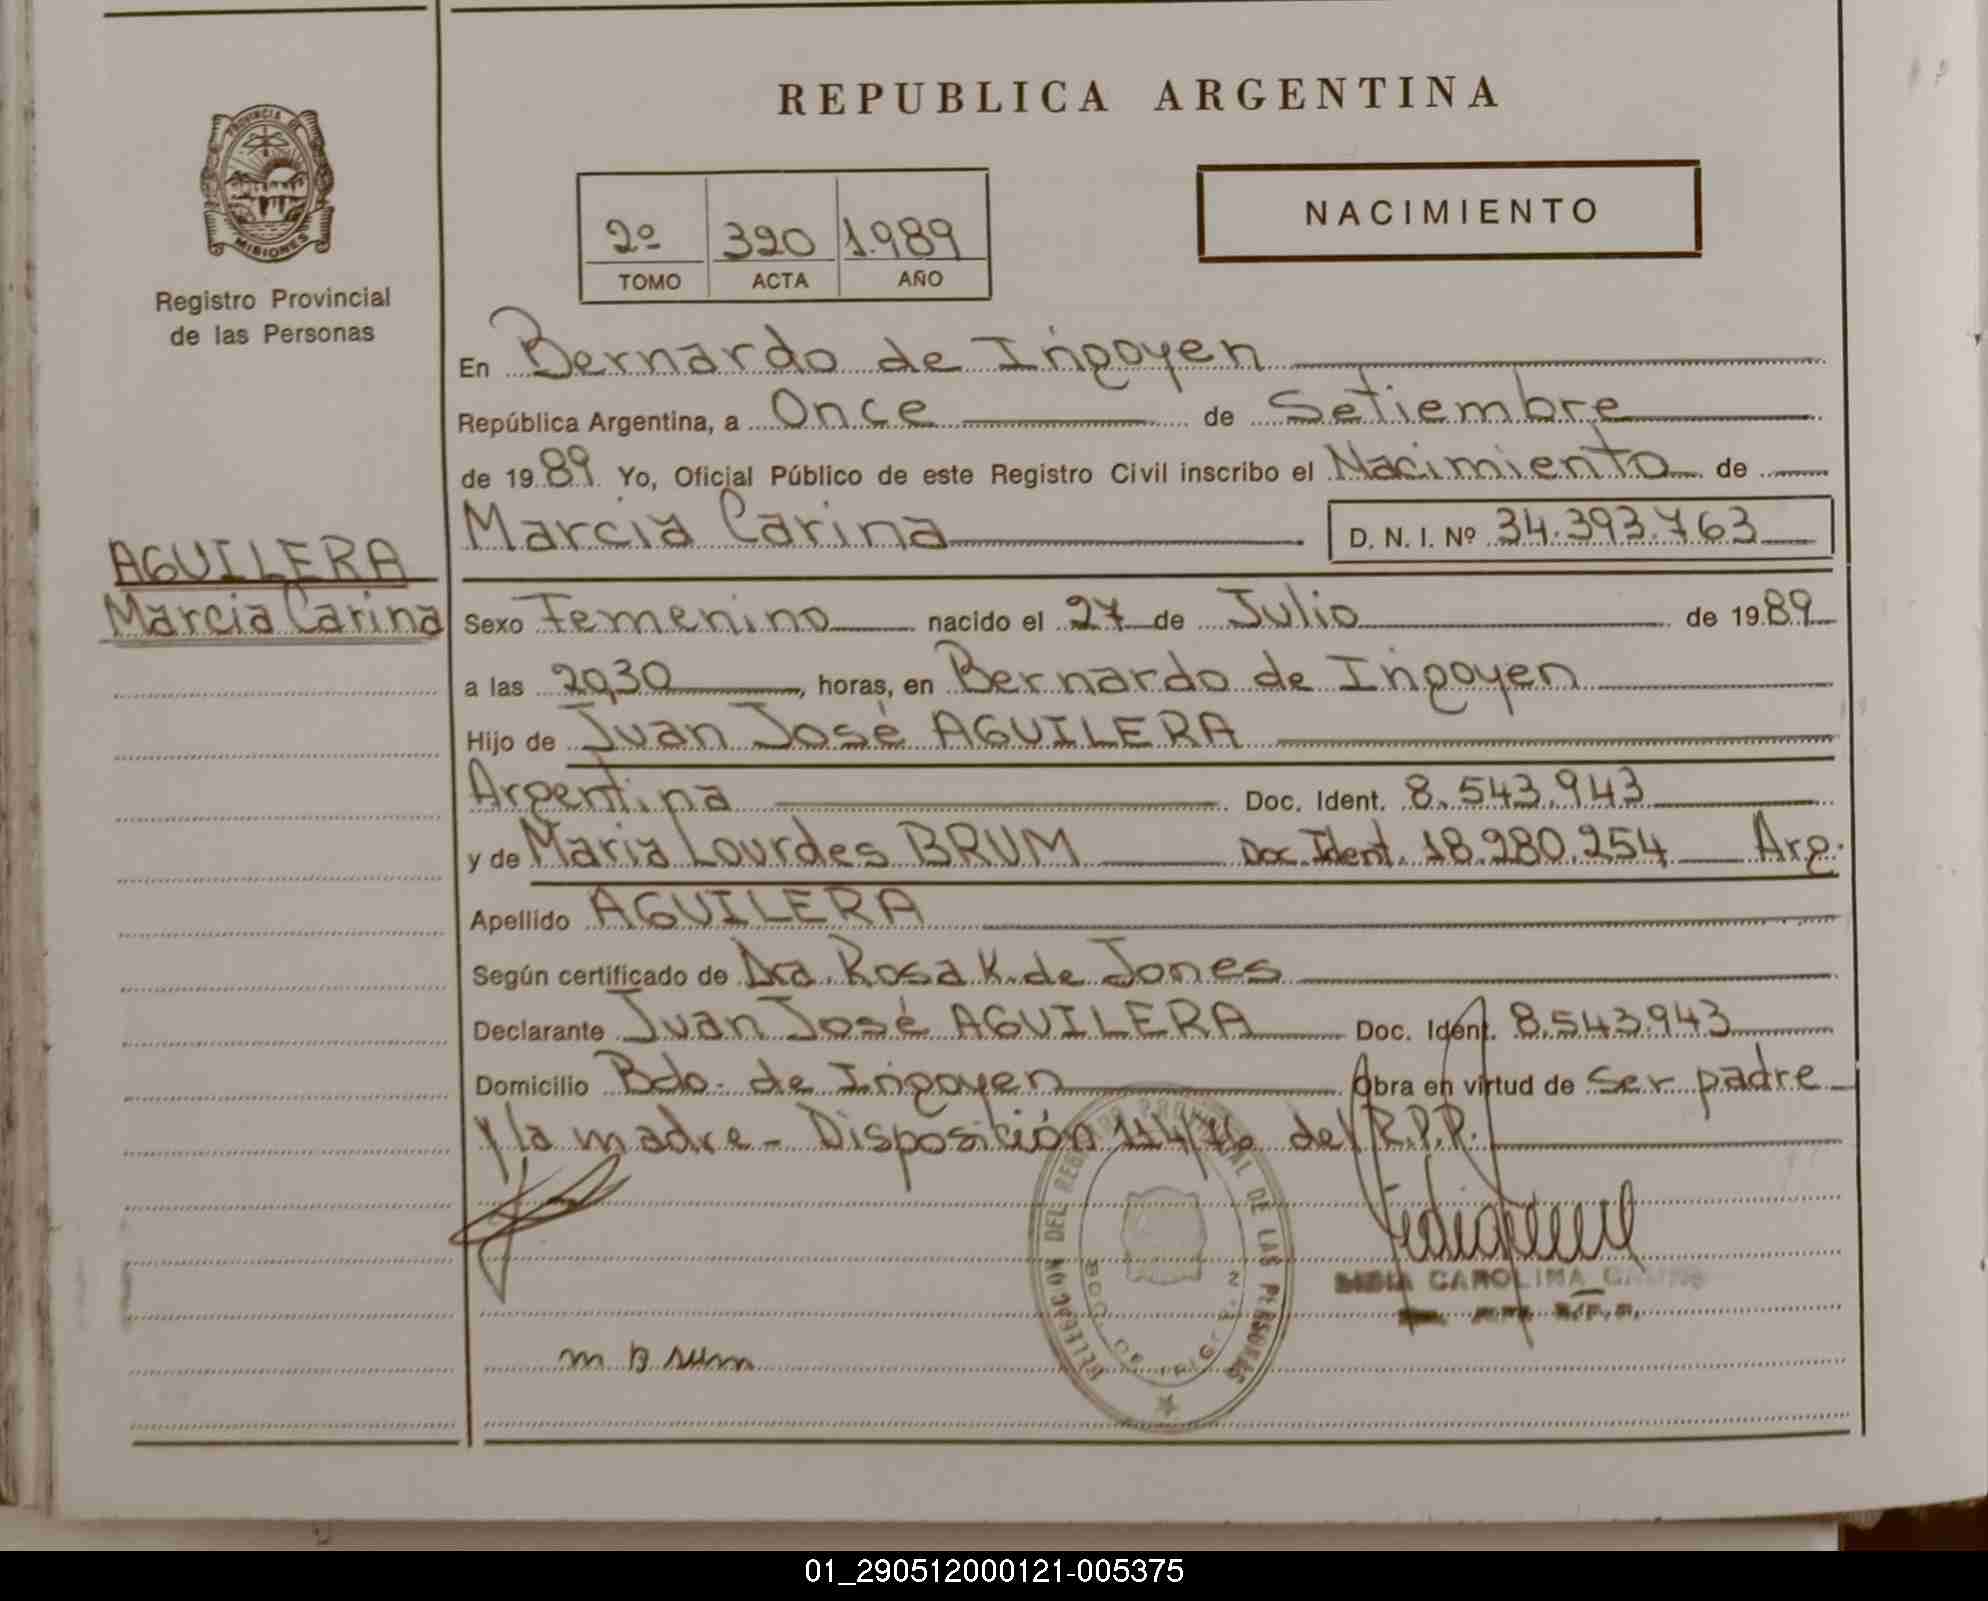 REPUBLICA ARGENTINA
PROVINCIA DE
MISIONES
Registro Provincial
de las Personas
2º 320 1.989
TOMO ACTA AÑO
NACIMIENTO
En Bernardo de Irigoyen
República Argentina, a Once de Setiembre
de 1989 Yo, Oficial Público de este Registro Civil inscribo el Nacimiento de
Marcia Carina D. N. I. Nº 34.393.763
AGUILERA
Marcia Carina
Sexo Femenino nacido el 27 de Julio de 1989
a las 20,30, horas, en Bernardo de Irigoyen
Hijo de Juan José AGUILERA
Argentina Doc. Ident. 8.543.943
y de Maria Lourdes BRUM Doc. Ident. 18.280.254 Arg.
Apellido AGUILERA
Según certificado de Dra. Rosa K. de Jones
Declarante Juan José AGUILERA Doc. Ident. 8.543.943
Domicilio Bdo. de Irigoyen Obra en virtud de Ser padre
y la madre - Disposición 114/76 del R.P.P.
DELEGACION DEL REGISTRO PROVINCIAL DE LAS PERSONAS
BDO. DE IRIGOYEN
CAROLINA
m Brum
01_290512000121-005375